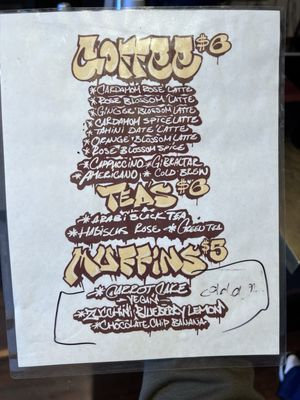 COFFEE $6
*CARDAMOM ROSE LATTE
*ROSE BLOSSOM LATTE
*GINGER BLOSSOM LATTE
*CARDAMOM SPICE LATTE
*TAHINI DATE LATTE
*ORANGE BLOSSOM LATTE
*ROSE BLOSSOM SPICE
*CAPPUCCINO *GIBRALTAR
*AMERICANO *COLD BREW
TEAS $6
*ARABI BLACK TEA
*HABISCUS ROSE *GREEN TEA
MUFFINS $5
*CARROT CAKE
VEGAN
*ZUCCHINI BLUEBERRY LEMON
*CHOCOLATE CHIP BANANA